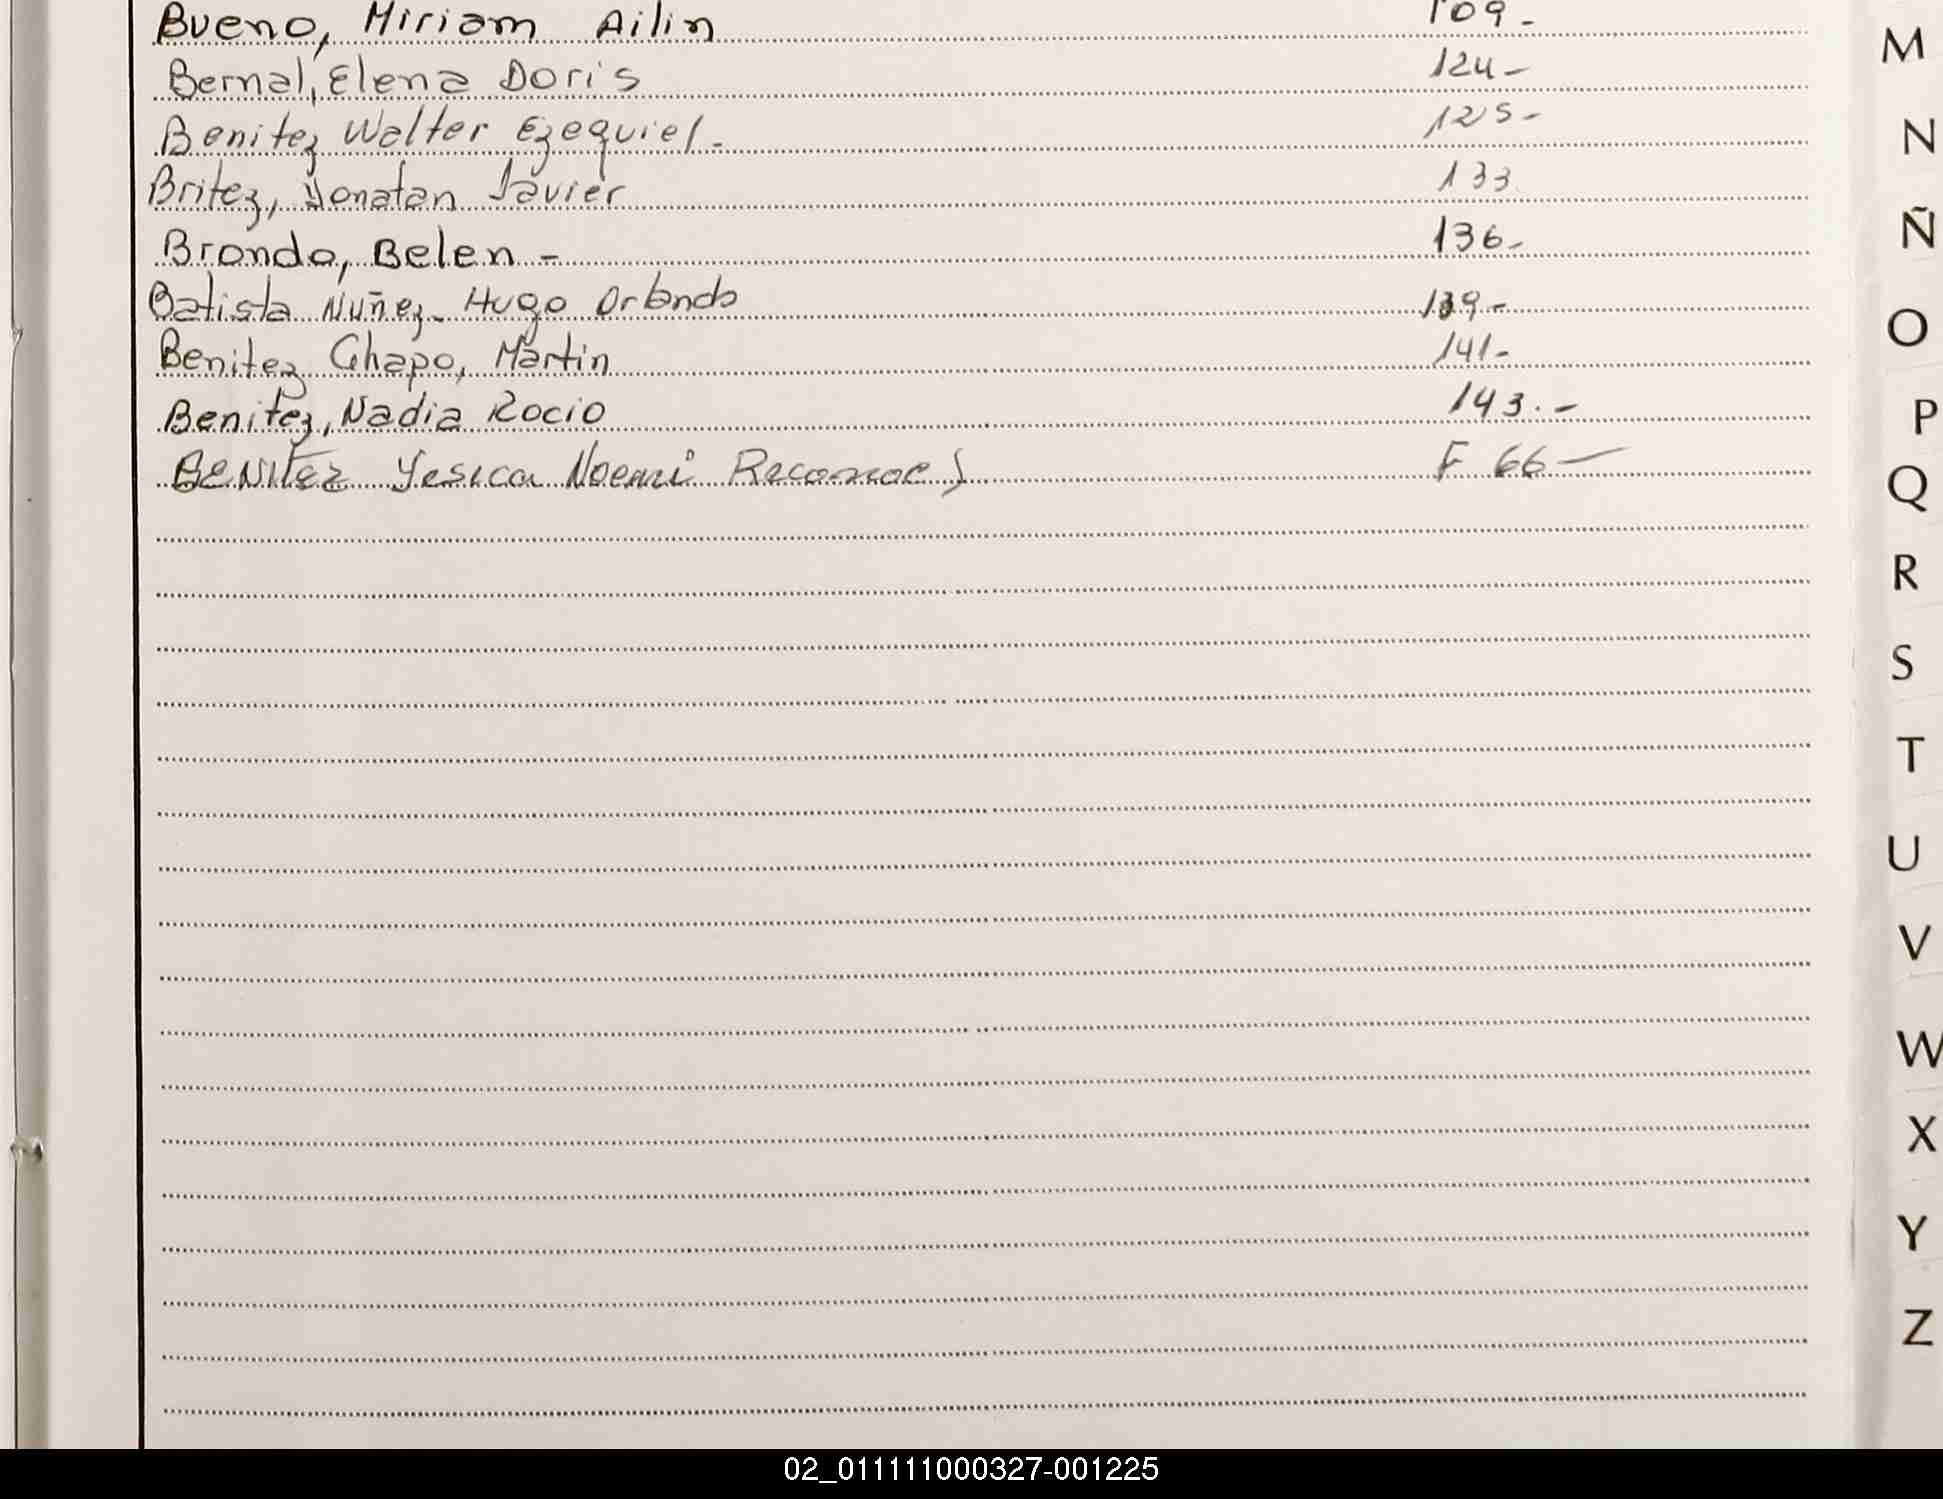 Bueno, Miriam Ailin 109-
Bernal, Elena Doris 124-
Benitez Walter Ezequiel- 125-
Britez, Yonatan Javier 133
Brondo, Belen - 136-
Batista Nuñez- Hugo Orlando 139-
Benitez Chapo, Martin 141-
Benitez, Nadia Rocio 143.-
BENITEZ Yesica Noemi F 66-
M
N
Ñ
O
P
Q
R
S
T
U
V
W
X
Y
Z
02_011111000327-001225